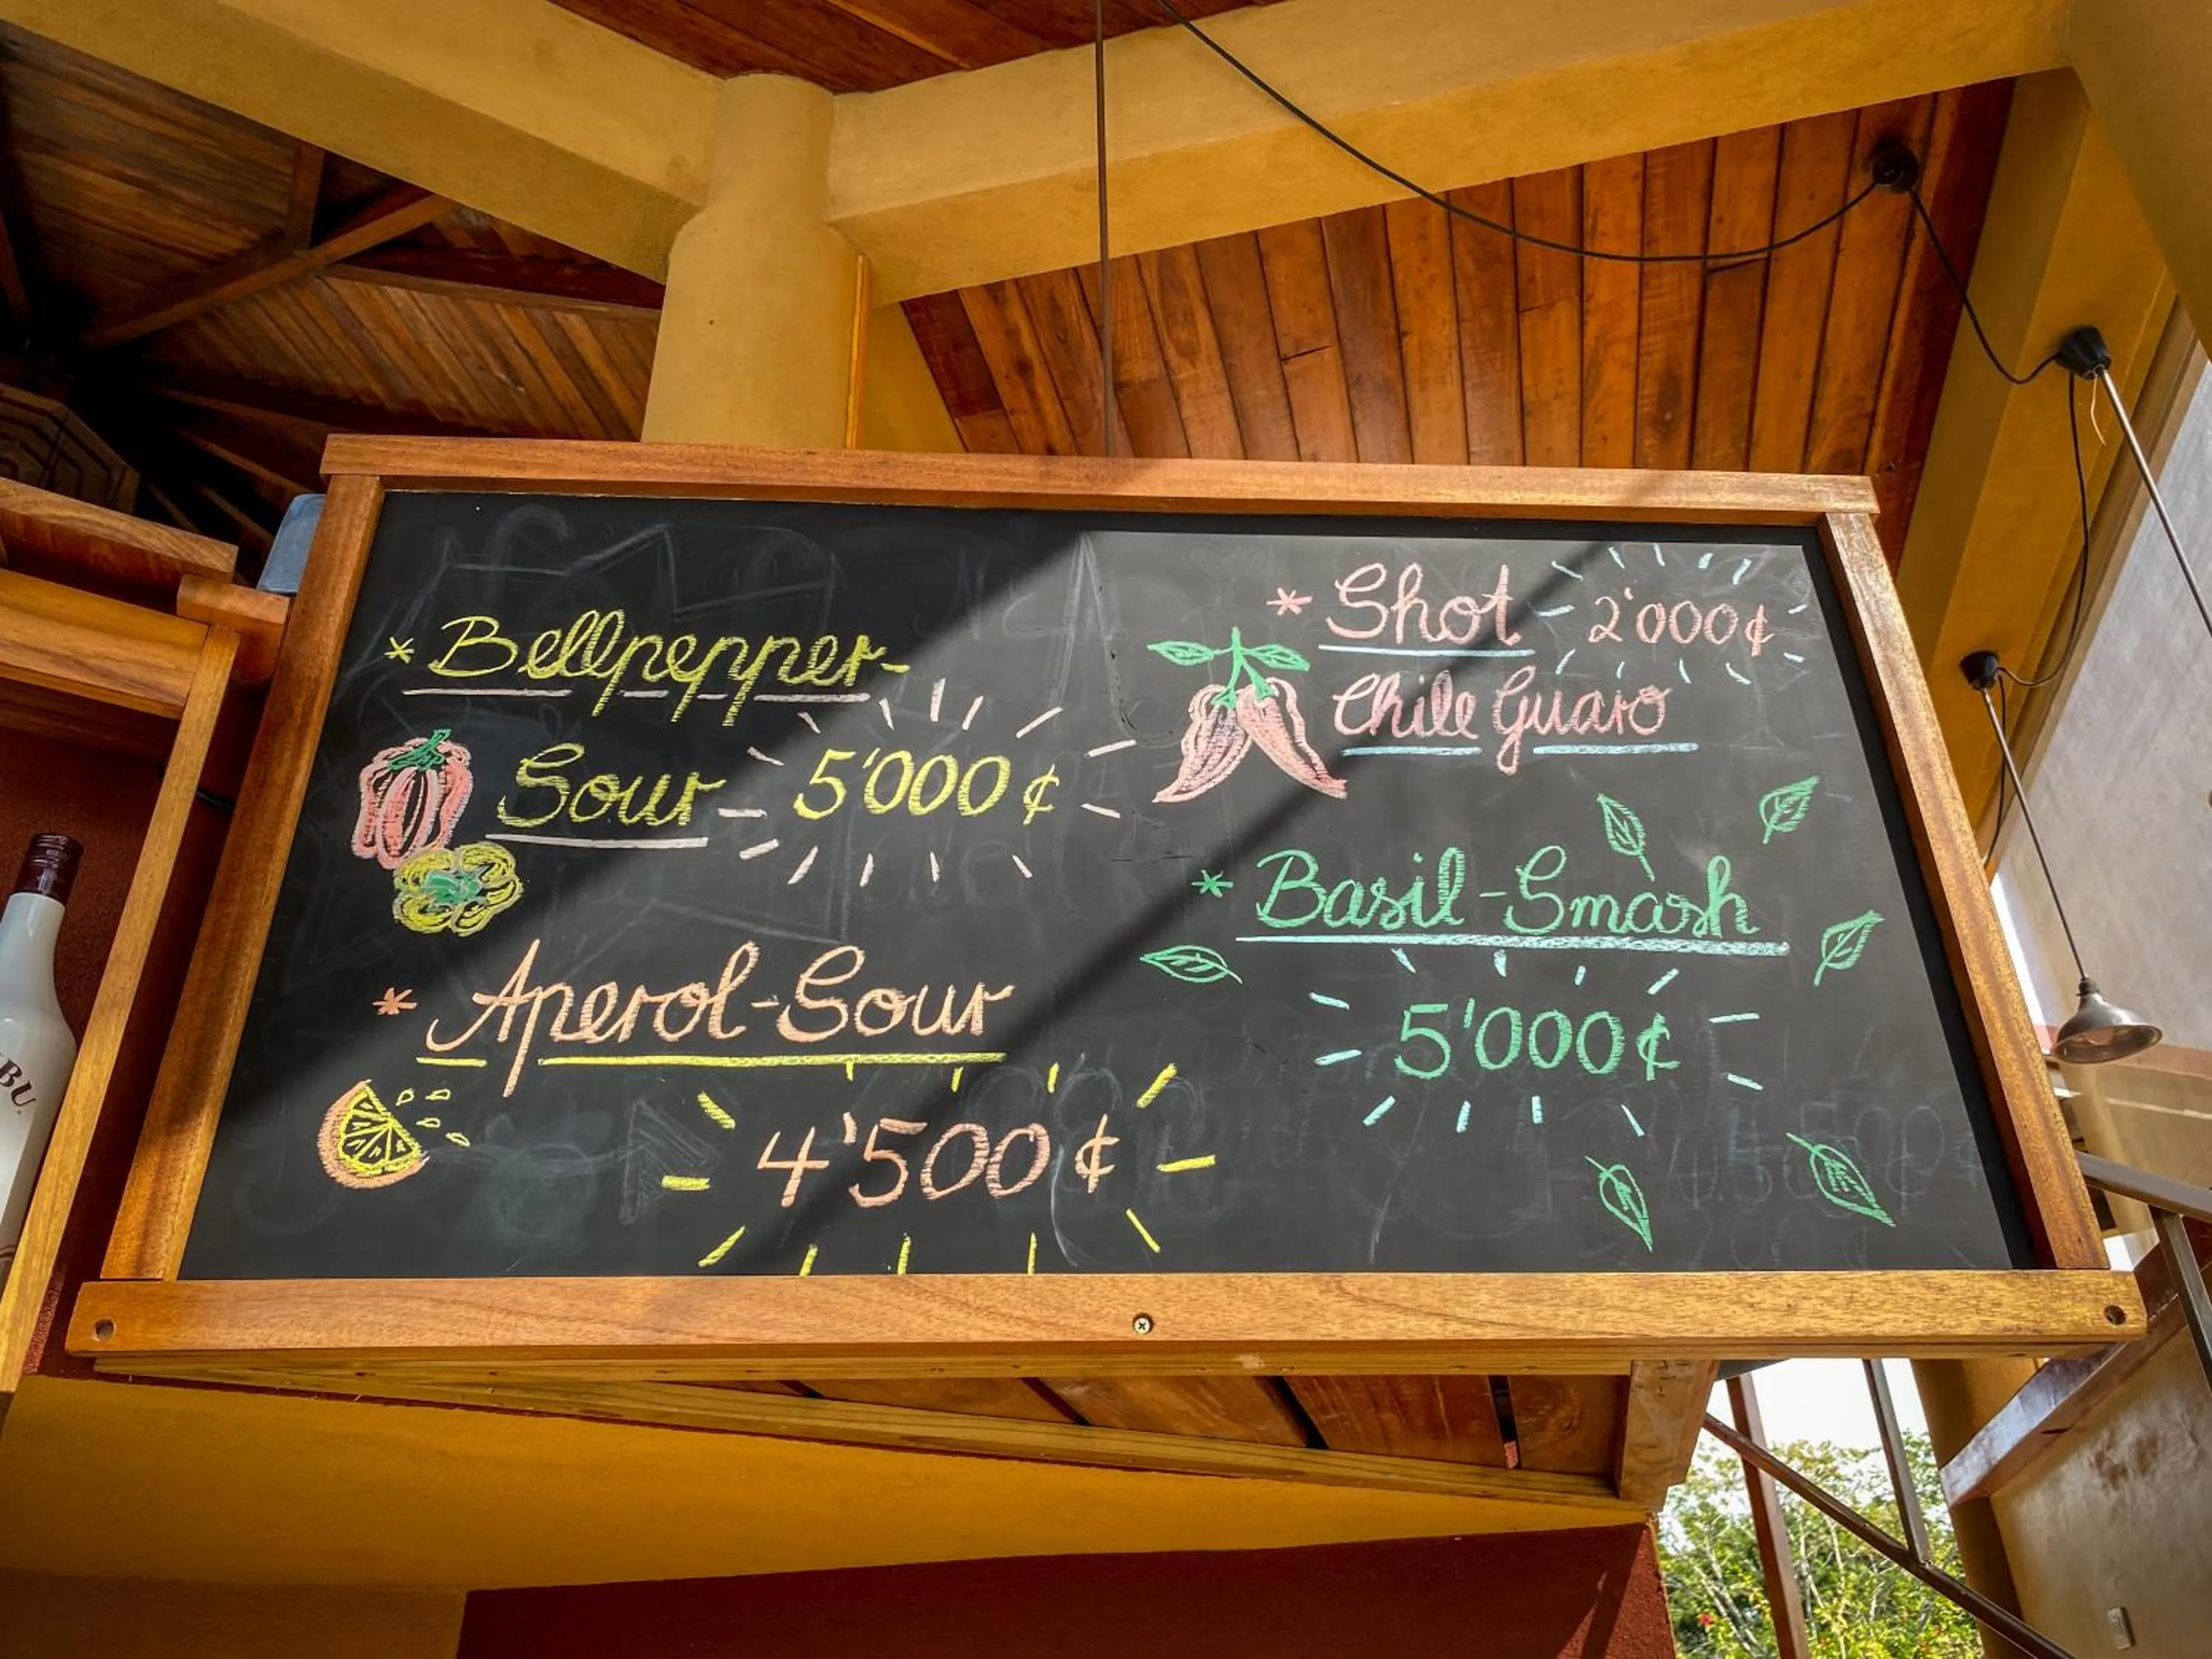 * Bellpepper-
Sour 5'000 ¢
* Aperol-Sour
4'500 ¢
* Shot 2'000¢
Chile Guaro
* Basil-Smash
5'000¢
BU